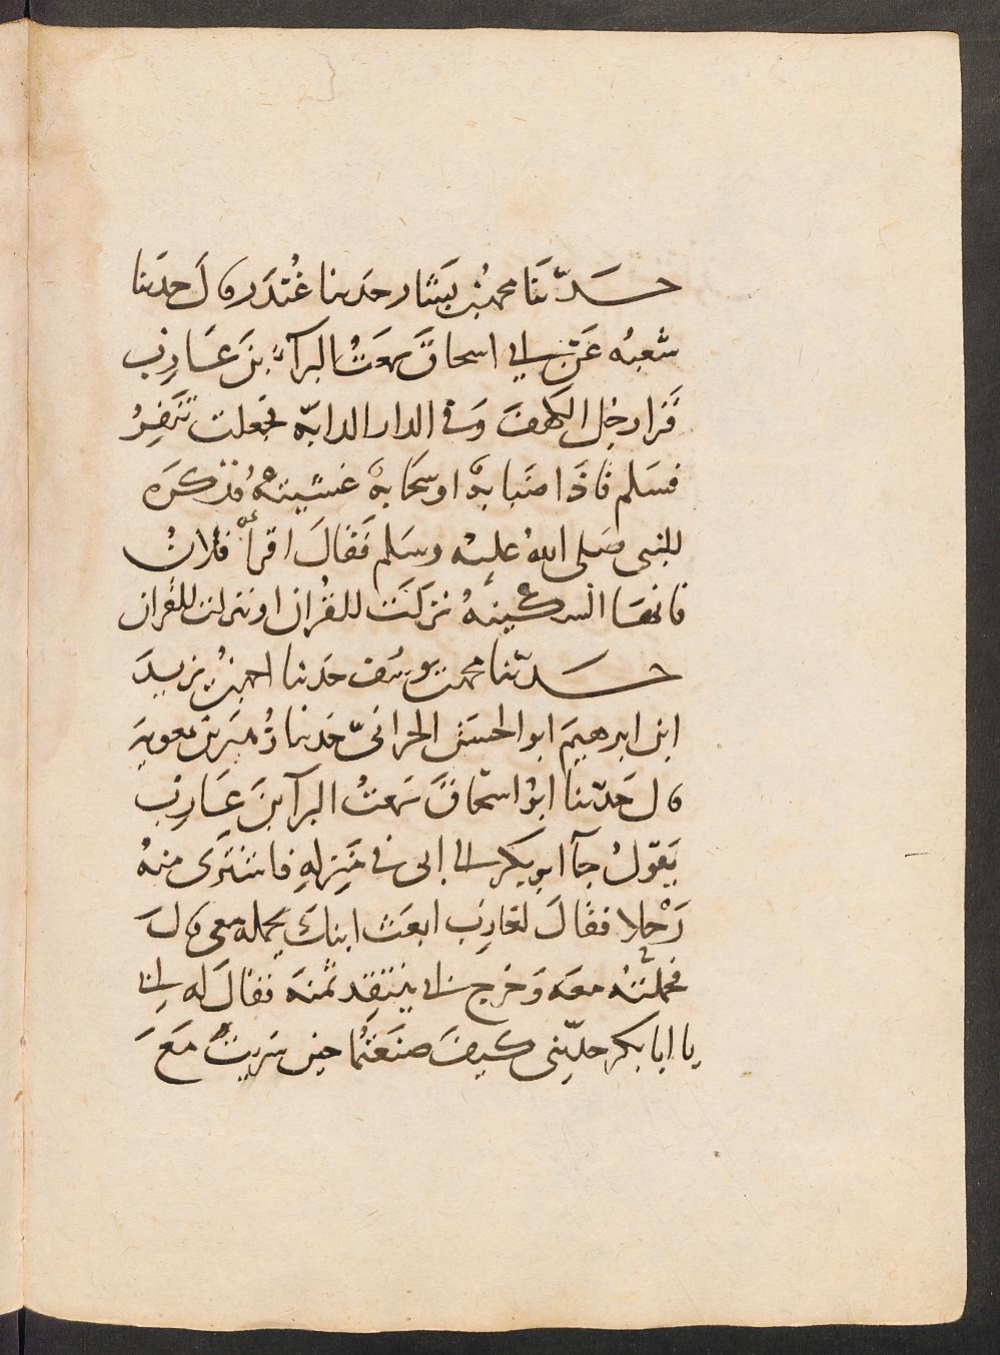 حَدّثنَا محمدُ بن بَشار حَدثنا غُندَر قالَ حَدثنا
شعبه عَن ابي اسحاقَ سمعَتُ البرآءَ بنَ عَازِبٍ
قَرا رجل الكهفَ وَفي الدار الدابّه فجعلت تَنفِرُ
فسَلم فاذَا ضَبابةٌ او سَحابةٌ غشيتهُ فذكرَه
للنبي صَلى اللهُ عليْه وسَلم فَقالَ اقرأ فلانُ
فانهَا السكينهُ نزلَتْ للقُران او تنزلت للقران
حَدّثنا محمد بن يوسُف حَدثنا احمدُ بن يزيدَ
ابن ابرهيمَ ابو الحسَن الحَرانيّ حَدثنا زُهيرُ بن معويهَ
قال حَدّثنا ابوُ اسحاقَ سَمعتُ البرآ بنَ عَازبٍ
يَقولُ جآ ابو بكر الي ابى في مَنزِلهِ فاشترَى منهُ
رَحْلا فقالَ لعَازِبٍ ابعَث ابنكَ يحمله معى قالَ
فحملتُهُ معَه وَخرج ابي ينتَقِد ثمنَه فقالَ له ابي
يا ابا بكر حدّثِنى كيفَ صنَعَتُما حينَ سَريتَ مَعَ